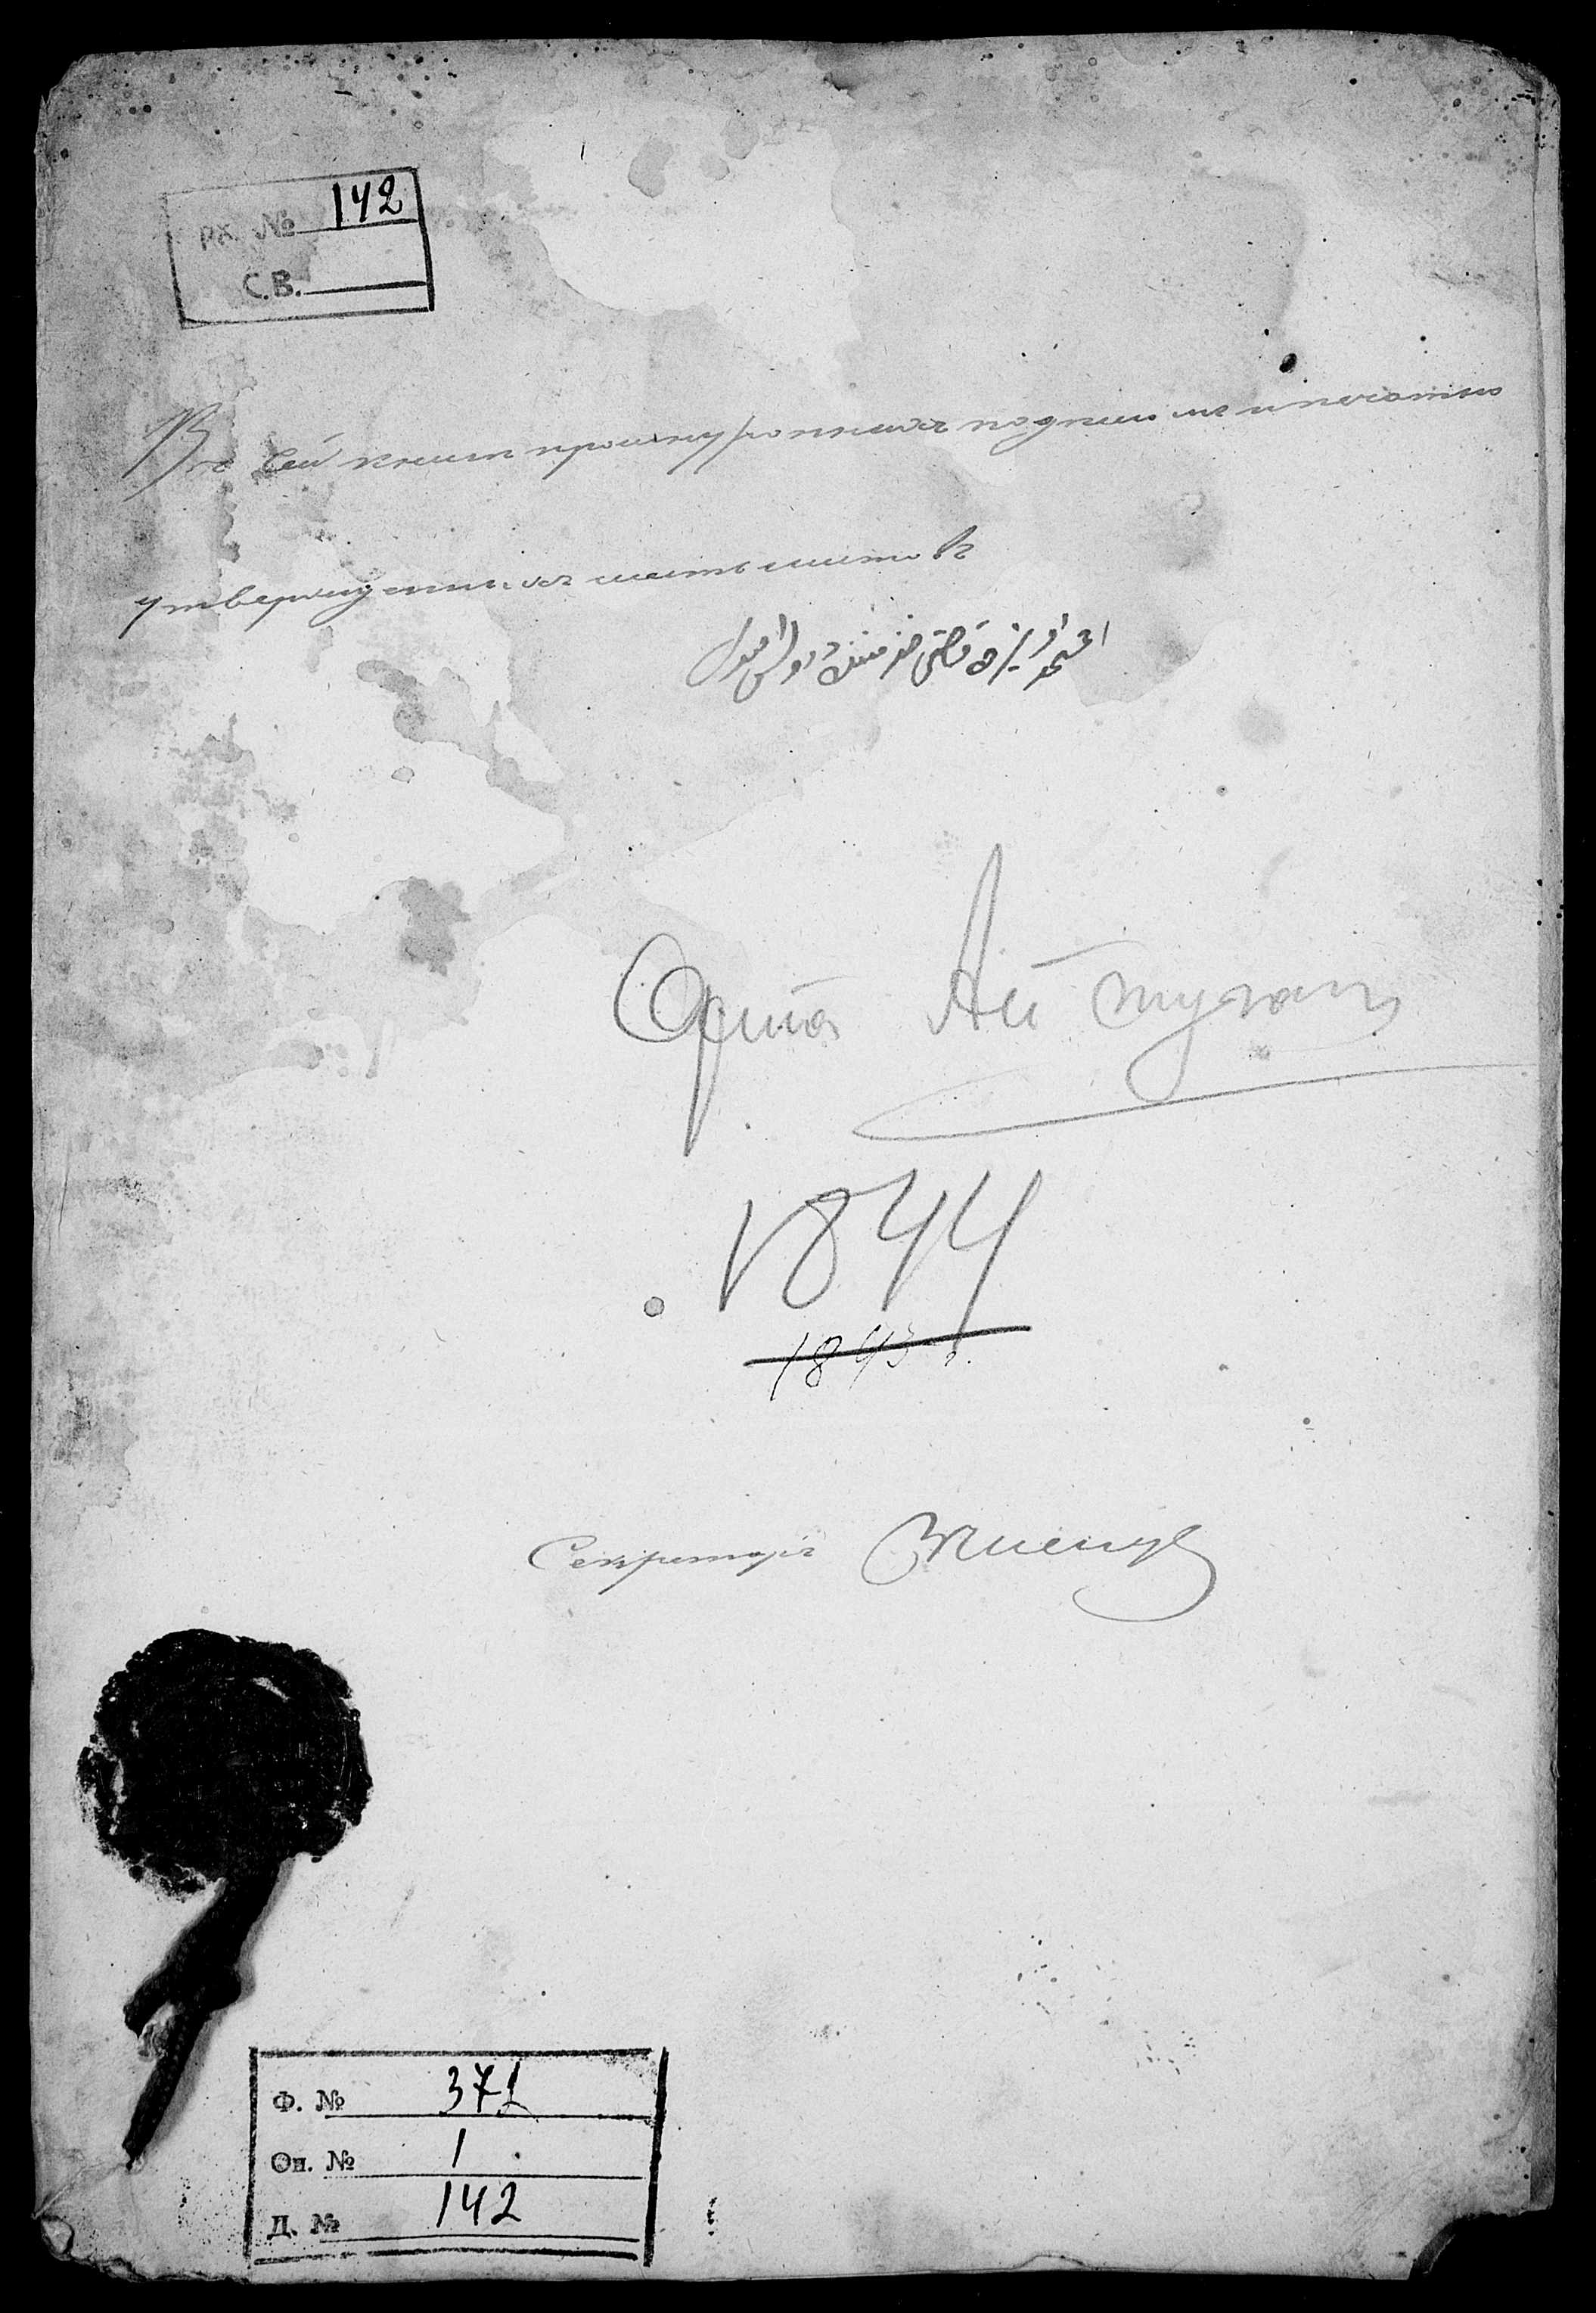 рх. № 142
С.В.
Въ сей книги прошнурованыхъ подписью и печатью
утвержденныхъ шесть листовъ
Орта Ай тугань
1844
1843 г.
Секретарь
Ф. № 371
Оп. № 1
Д. № 142